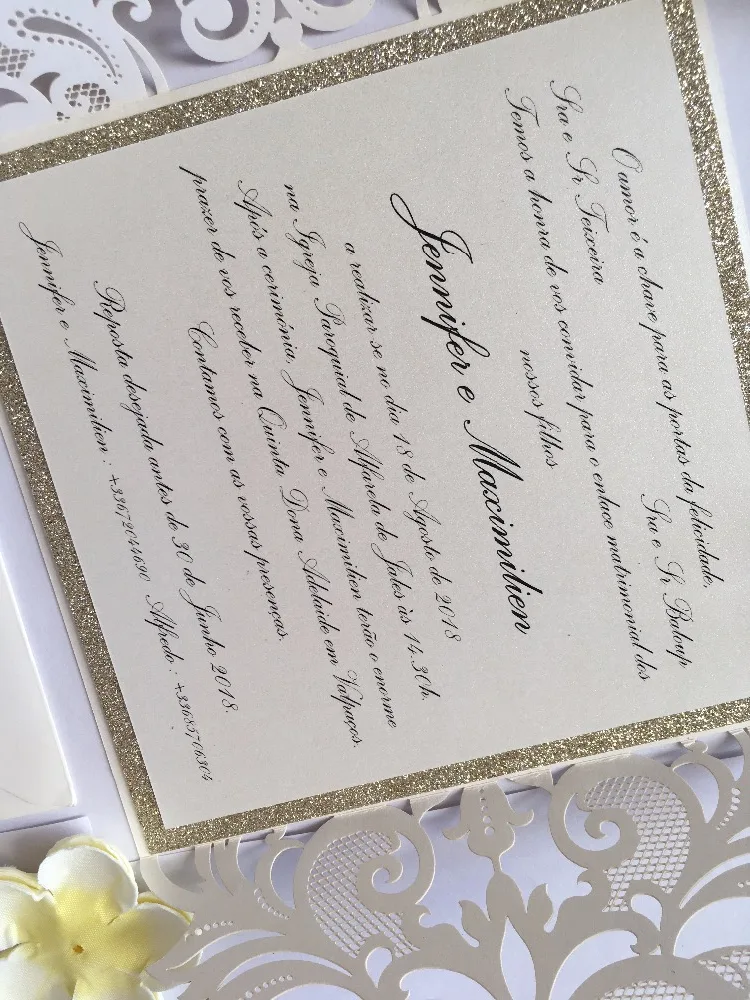 O amor é a chave para as portas da felicidade,
Sra e Sr Teixeira Sra e Sr Baloup
Temos a honra de vos convidar para o enlace matrimonial dos
nossos filhos
Jennifer e Maximilien
a realizar se no dia 18 de Agosto de 2018
na Igreja Paroquial de Alfarela de Jales às 14.30h.
Após a cerimónia, Jennifer e Maximilien terão o enorme
prazer de vos receber na Quinta Dona Adelaide em Valpaços.
Contamos com as vossas presenças.
Reposta desejada antes de 30 de Junho 2018.
Jennifer e Maximilien : +33672044690 Alfredo : +33685706304